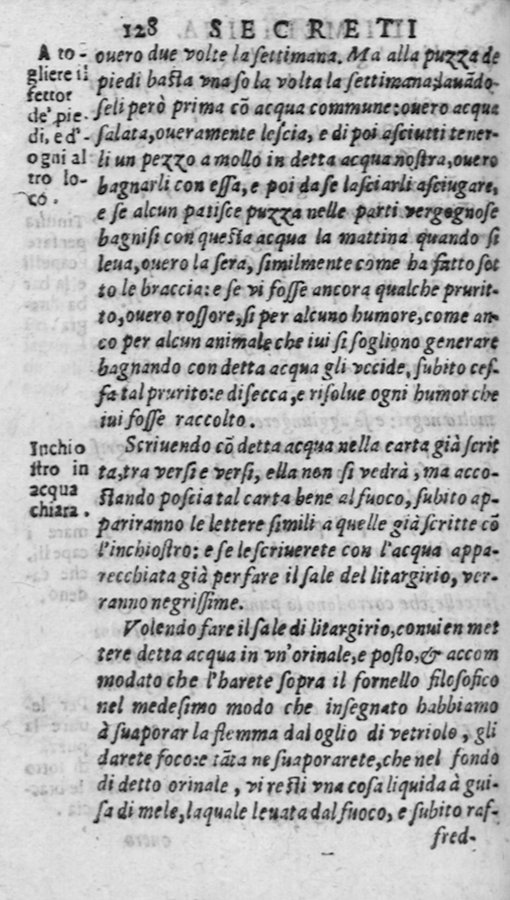 128 SECRETI
A to-
gliere il
fettor
de' pie-
di, e d'-
ogni al
tro lo-
co.
ouero due volte la settimana. Ma alla puzza de
piedi basta vna sola volta la settimana; lauãdo-
seli però prima cõ acqua commune: ouero acqua
salata, oueramente lescia, e di poi asciutti tener-
li un pezzo a mollo in detta acqua nostra, ouero
bagnarli con essa, e poi da se lasciarli asciugare,
e se alcun patisce puzza nelle parti vergognose
bagnisi con questa acqua la mattina quando si
leua, ouero la sera, similmente come ha fatto sot
to le braccia: e se vi fosse ancora qualche prurit-
to, ouero rossore, si per alcuno humore, come an-
co per alcun animale che iui si sogliono generare
bagnando con detta acqua gli vccide, subito ces-
sa tal prurito: e disecca, e risolue ogni humor che
iui fosse raccolto.
Inchio
stro in
acqua
chiara.
Scriuendo cõ detta acqua nella carta già scrit
ta, tra versi e versi, ella non si vedrà, ma acco-
stando poscia tal carta bene al fuoco, subito ap-
pariranno le lettere simili a quelle già scritte cõ
l'inchiostro: e se le scriuerete con l'acqua appa-
recchiata già per fare il sale del litargirio, ver-
ranno negrissime.
Volendo fare il sale di litargirio, conuien met
tere detta acqua in vn'orinale, e posto, & accom
modato che l'harete sopra il fornello filosofico
nel medesimo modo che insegnato habbiamo
à suaporar la flemma dal oglio di vetriolo, gli
darete foco: e tãta ne suaporarete, che nel fondo
di detto orinale, vi resti vna cosa liquida à gui-
sa di mele, laquale leuata dal fuoco, e subito raf-
fred-